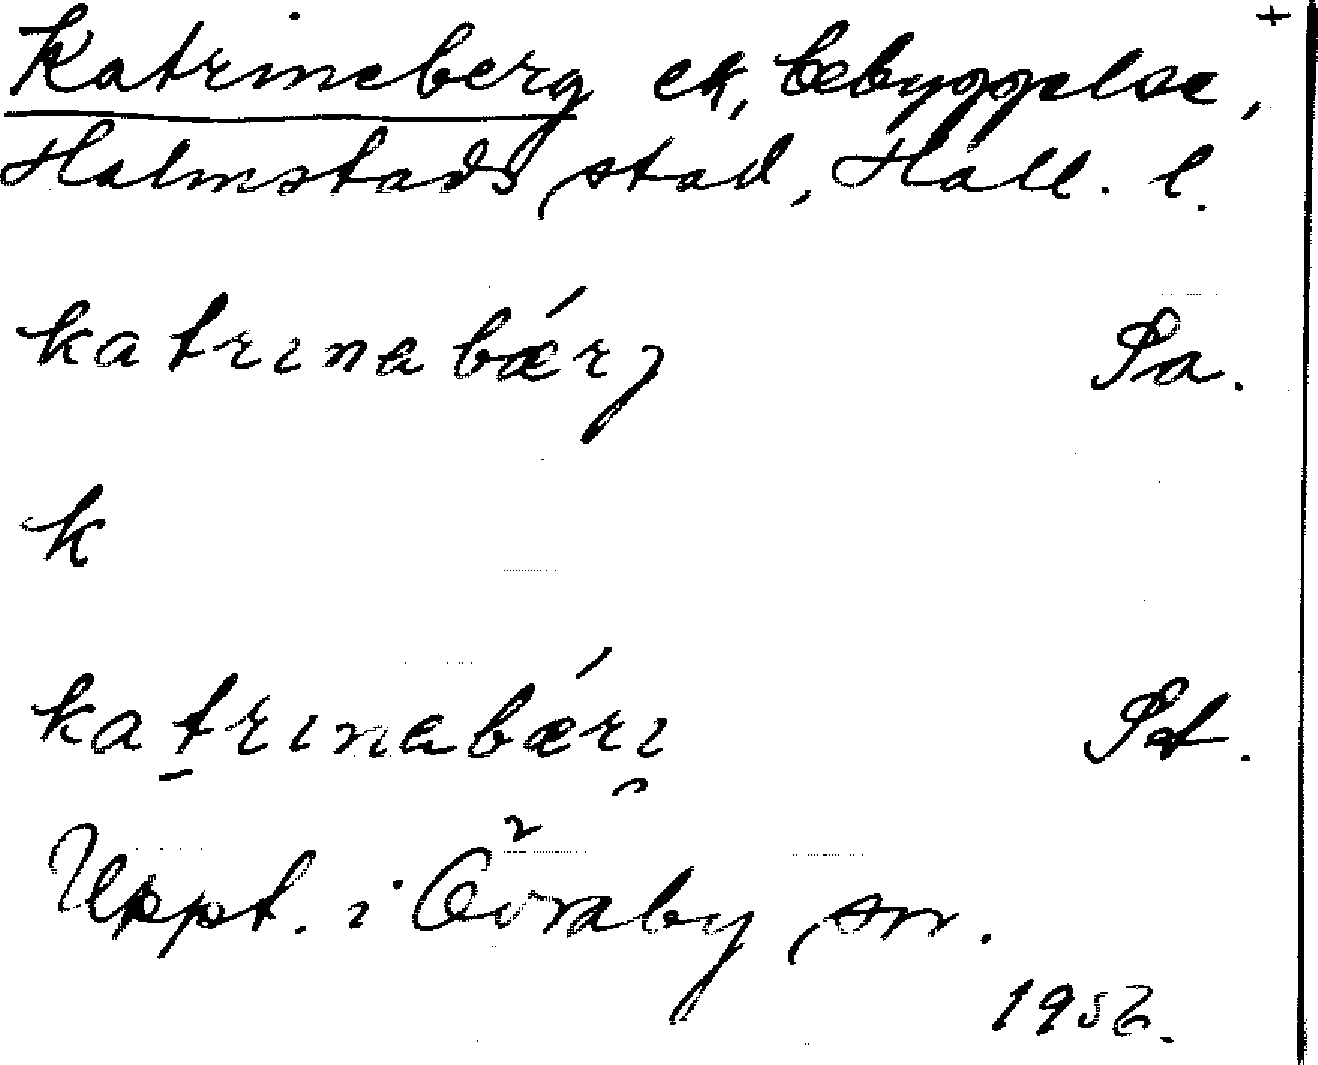 +
Katrineberg ek, bebyggelse,
Halmstads stad, Hall. l.
katrinabǽrj Sa.
k
katrinabǽri̯ St.
Uppt. i Övraby sn.
1952.